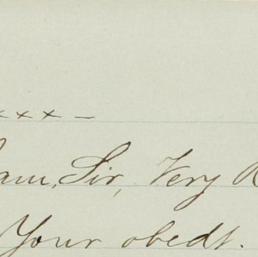 xxx –
am, Sir, Very R
Your obedt.